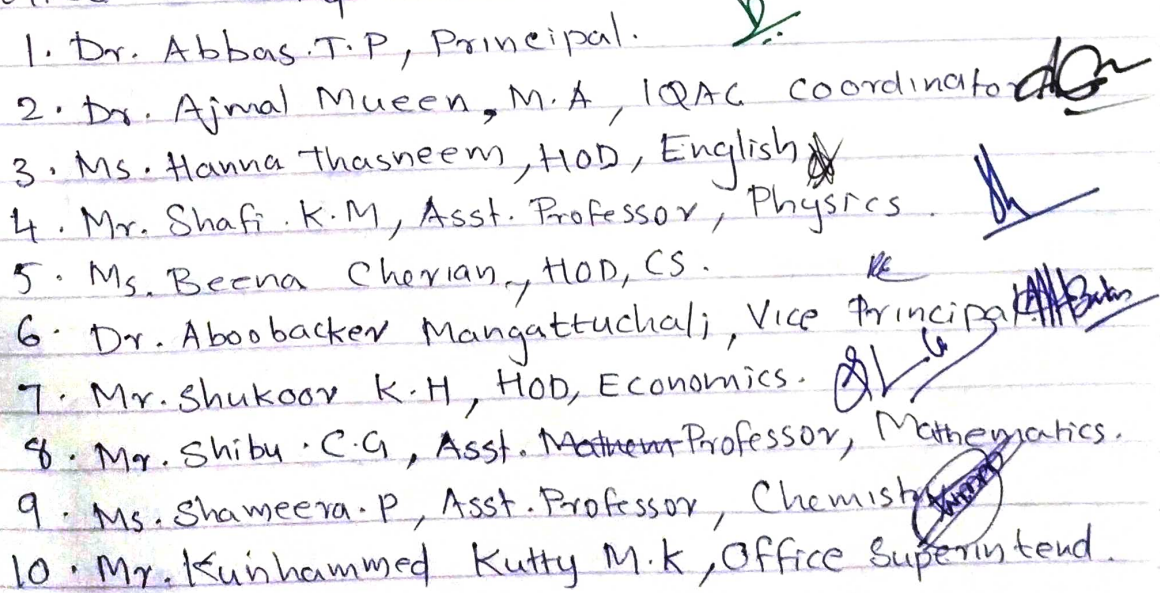 1. Dr. Abbas.T.P, Principal.
2. Dr. Ajmal Mueen, M.A, IQAC Coordinator
3. Ms. Hanna Thasneem, HOD, English
4. Mr. Shafi.K.M, Asst. Professor, Physics.
5. Ms. Beena Cherian, HOD, CS.
6. Dr. Aboobacker Mangattuchali, Vice Principal.
7. Mr. Shukoor K.H, HOD, Economics.
8. Mr. Shibu.C.G, Asst. Mathem Professor, Mathematics.
9. Ms. Shameera.P, Asst. Professor, Chemistry
10. Mr. Kunhammed Kutty M.K, Office Superintend.